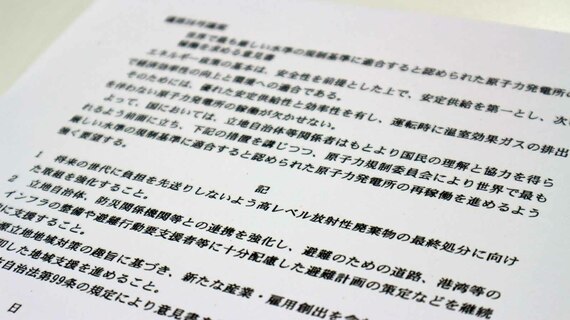 世界で最も厳しい水準の規制基準に適合すると認められた原子力発電所の
稼働を求める意見書
エネルギー政策の基本は、安全性を前提とした上で、安定供給を第一とし、次い
で経済効率性の向上と環境への適合である。
そのためには、優れた安定供給性と効率性を有し、運転時に温室効果ガスの排出
を伴わない原子力発電所の稼働が欠かせない。
よって、国においては、立地自治体等関係者はもとより国民の理解と協力を得ら
れるよう前面に立ち、下記の措置を講じつつ、原子力規制委員会により世界で最も
厳しい水準の規制基準に適合すると認められた原子力発電所の再稼働を進めるよう
強く要望する。
記
1 将来の世代に負担を先送りしないよう高レベル放射性廃棄物の最終処分に向け
た取組を強化すること。
2 立地自治体、防災関係機関等との連携を強化し、避難のための道路、港湾等の
インフラの整備や避難行動要支援者等に十分配慮した避難計画の策定などを継続
に支援すること。
立地地域対策の趣旨に基づき、新たな産業・雇用創出を含
した地域支援を進めること。
自治法第99条の規定により意見書を
日